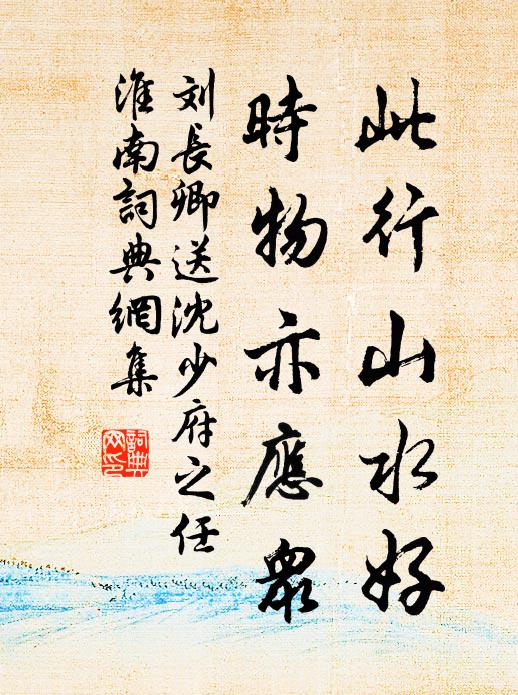 此行山水好
時物亦應眾
刘長卿送沈少府之任
淮南詞典網集
詞典